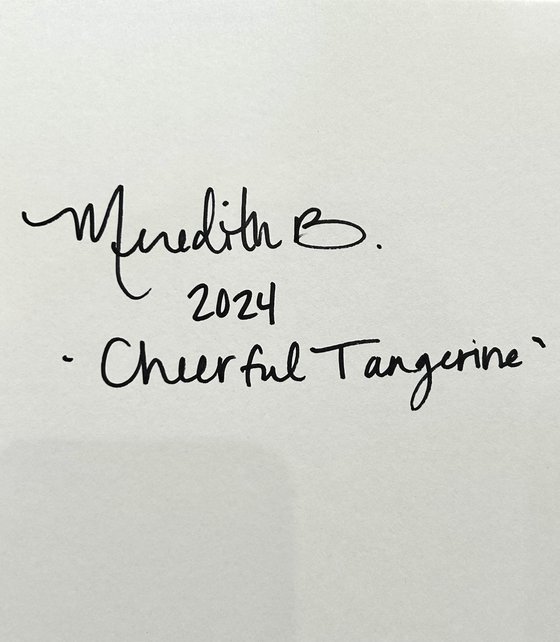 Meredith B.
2024
'Cheerful Tangerine'